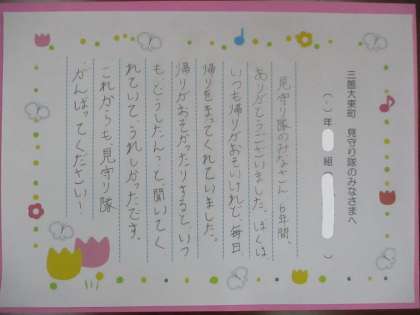 三箇大東町 見守り隊のみなさまへ
( )年( )組( )
見守り隊のみなさん6年間、
ありがとうございました。ぼくは
いつも帰りがおそいけれど、毎日
帰りをまってくれていました。
帰りがおそかったりすると、いつ
も、どうしたんっと聞いてく
れていて、うれしかったです。
これからも見守り隊
がんばってください!